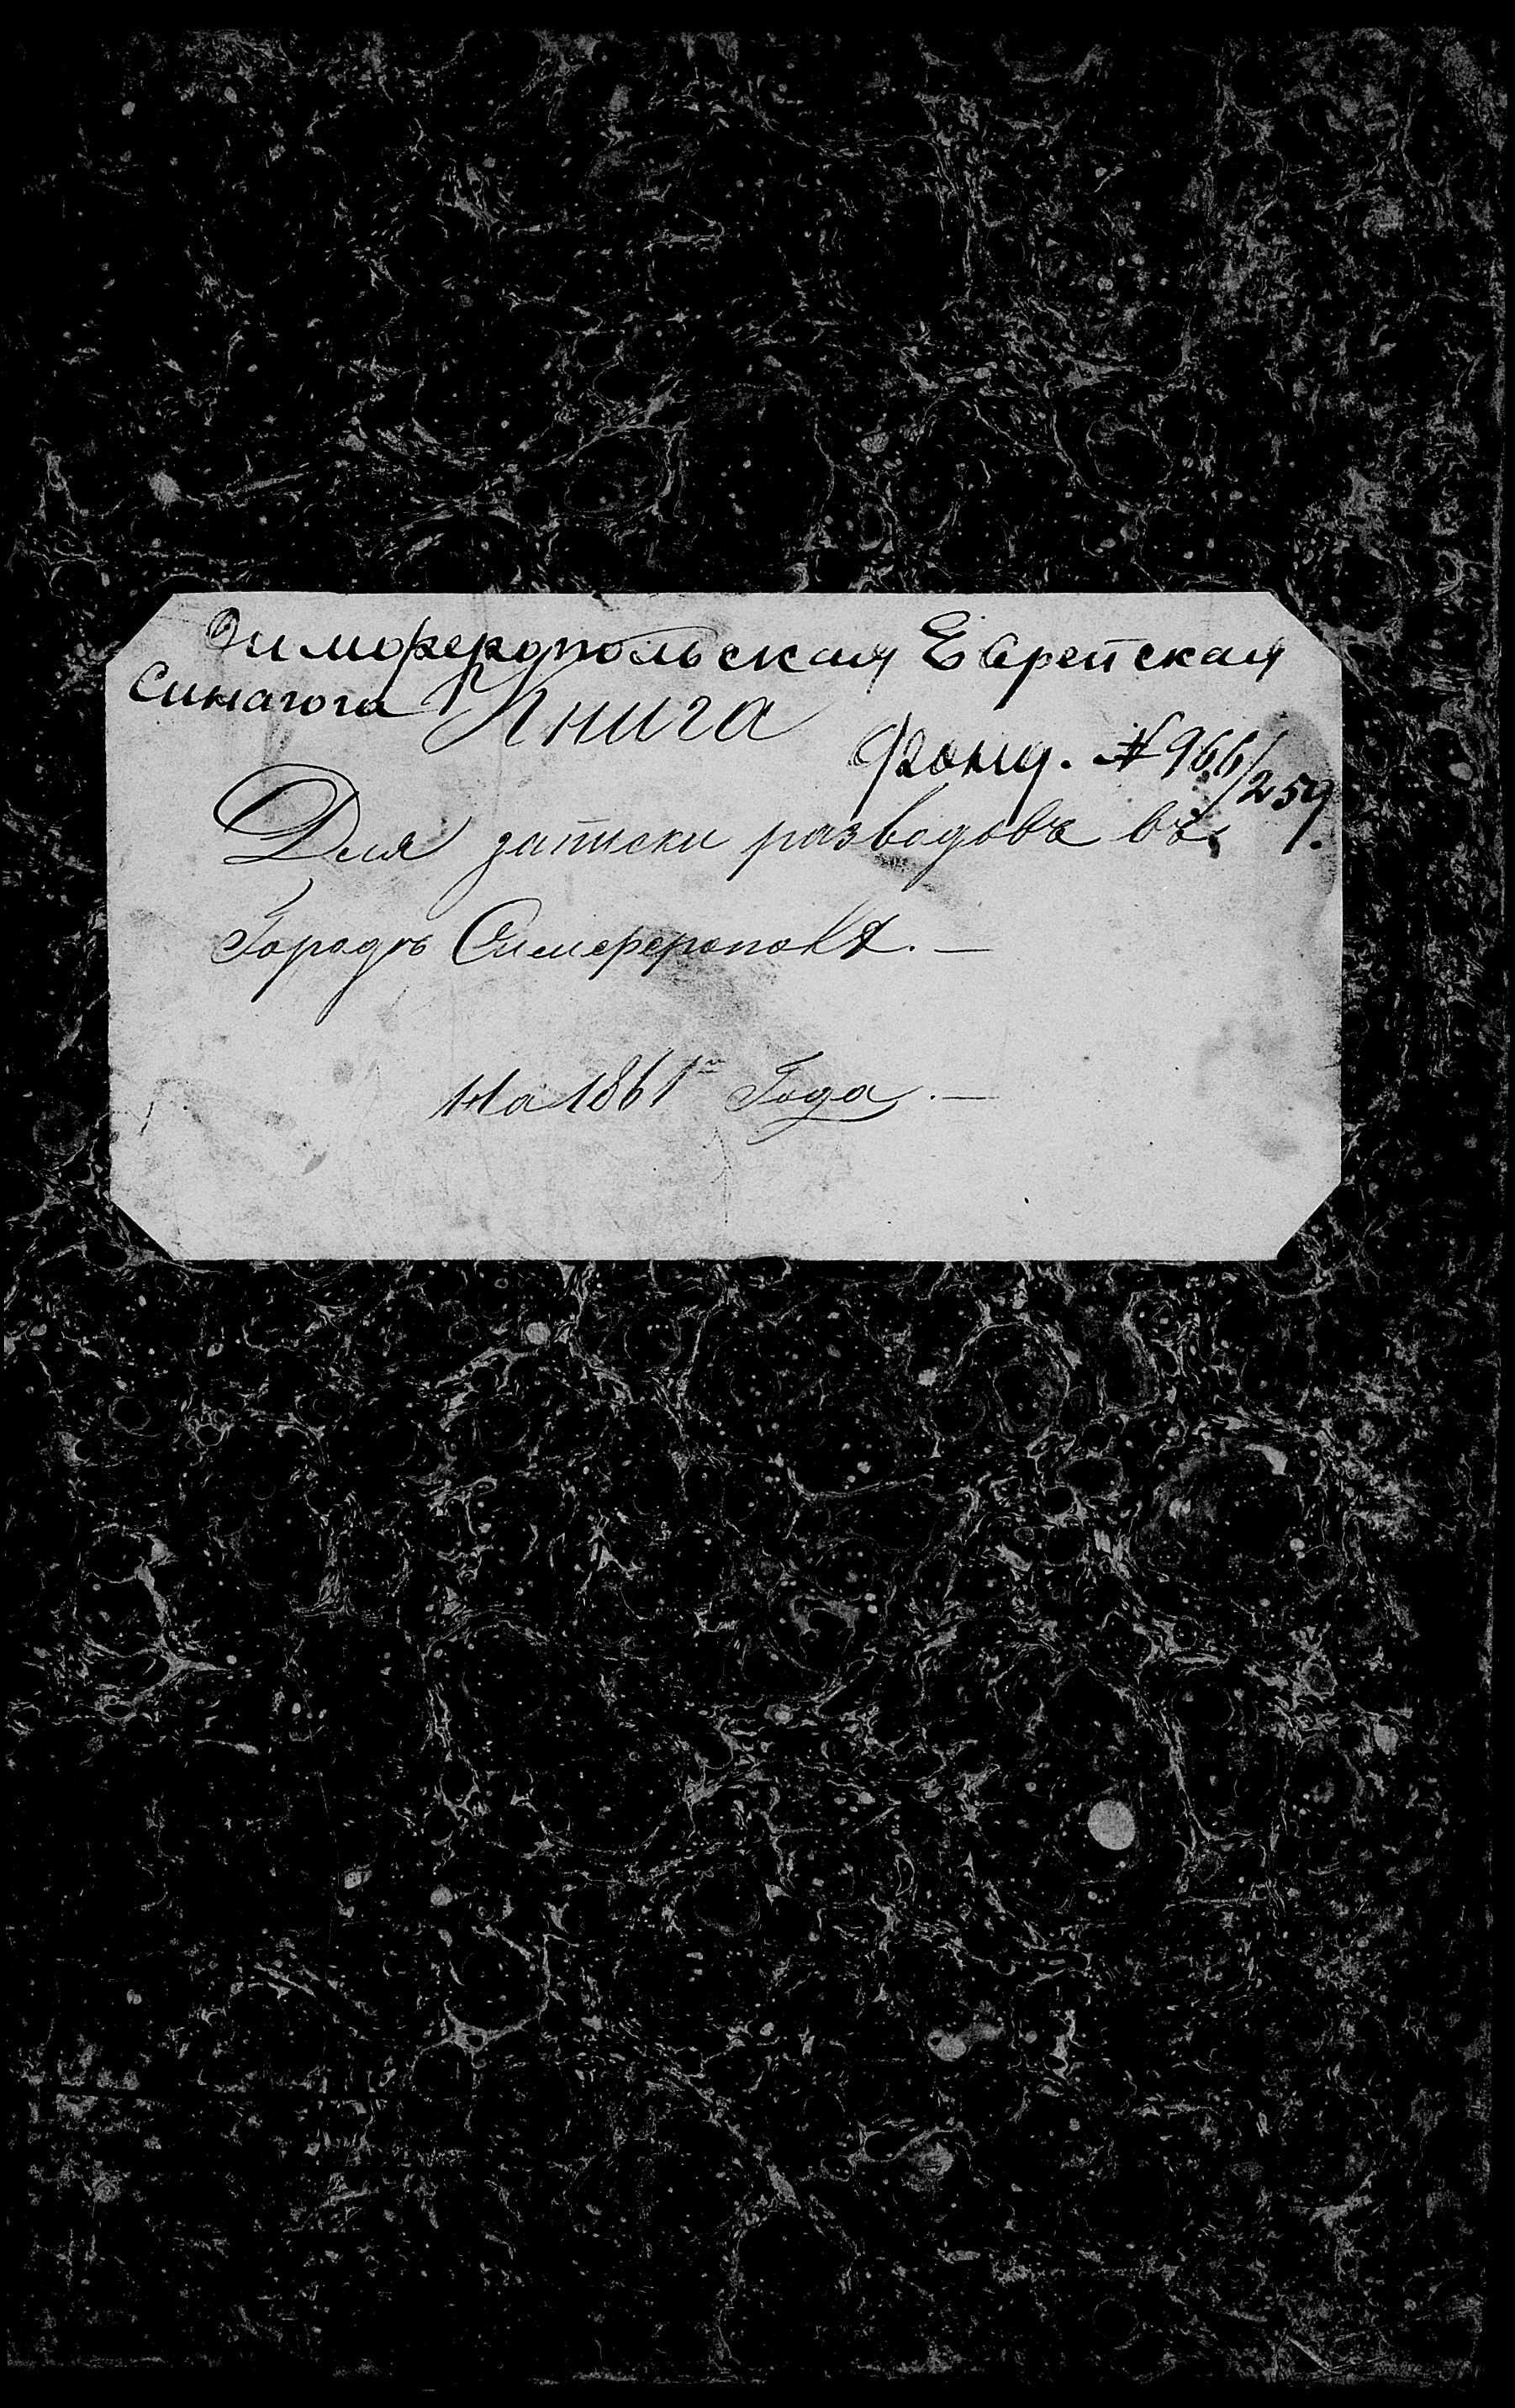 Симферопольская Еврейская
Синагога Книга
Фонд. № 966/259.
Для записки разводовъ въ
Городѣ Симферополѣ. —
На 1861 Года. —